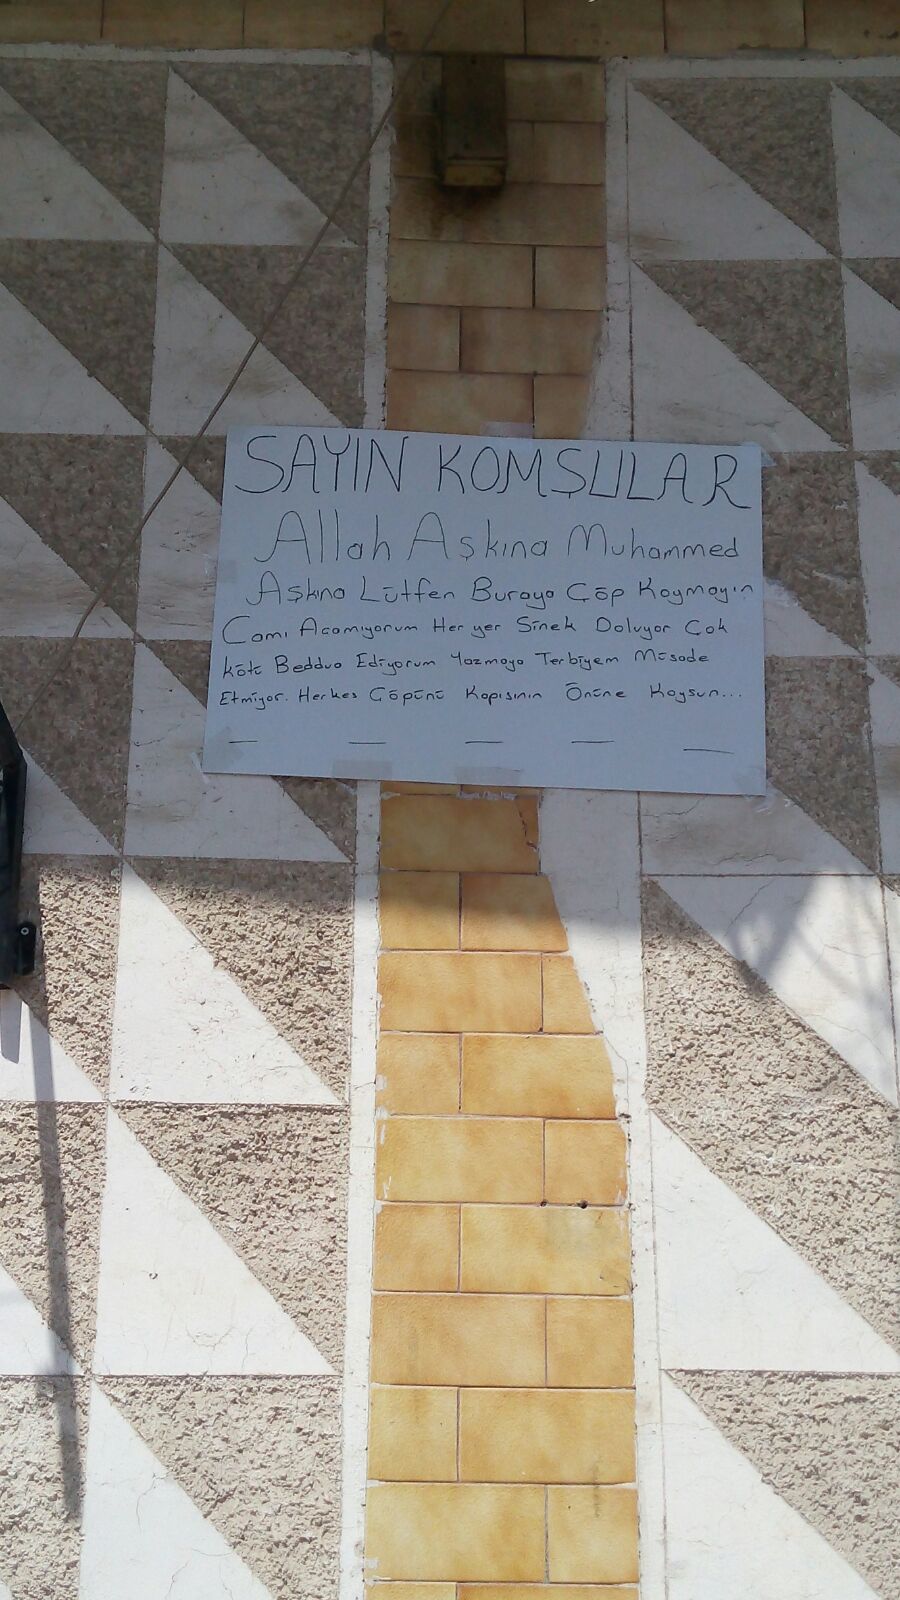 SAYIN KOMŞULAR
Allah Aşkına Muhammed
Aşkına Lütfen Buraya Çöp Koymayın
Camı Acamıyorum Her yer Sinek Doluyor Çok
kötü Beddua Ediyorum Yazmaya Terbiyem Müsade
Etmiyor. Herkes Çöpünü Kapısının Önüne Koysun...